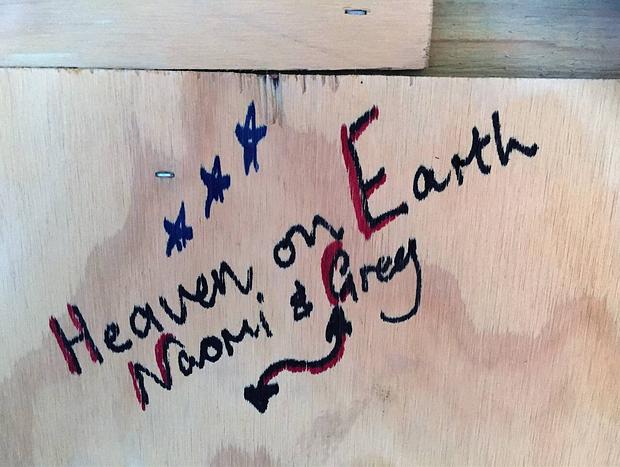 Heaven on Earth
Naomi & Greg